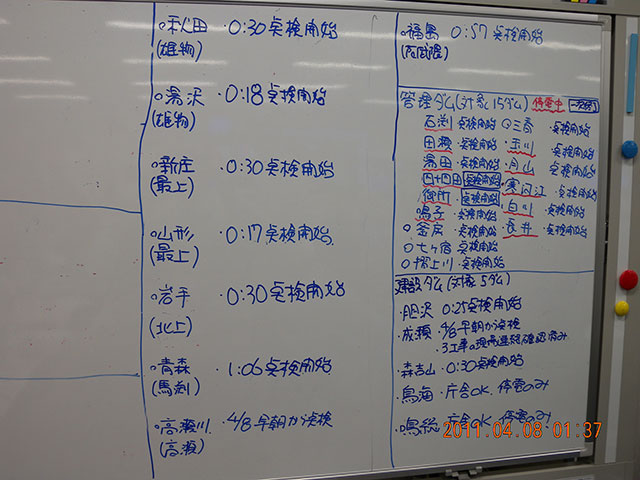 ○秋田 ・0:30点検開始
(雄物)
○湯沢 ・0:18点検開始
(雄物)
○新庄 ・0:30点検開始
(最上)
○山形 ・0:17点検開始
(最上)
○岩手 ・0:30点検開始
(北上)
○青森 ・1:06点検開始
(馬渕)
○高瀬川 ・4/8早朝から点検
(高瀬)
○福島 0:57点検開始
(阿武隈)
管理ダム(対象15ダム) 停電中
石渕 ・点検開始 ○三春 ・点検開始
田瀬 ・点検開始 玉川 ・点検開始
湯田 ・点検開始 月山 ・点検開始
四十四田 点検開始 寒河江 ・点検開始
御所 ・点検開始 白川 ・点検開始
鳴子 ・点検開始 長井 ・点検開始
○釜房 ・点検開始
○七ヶ宿 点検開始
○摺上川 ・点検開始
建設ダム(対象5ダム)
・胆沢 0:25点検開始
・成瀬 4/8早朝から点検
3工事の現場連絡確認済み
・森吉山 ・0:30点検開始
・鳥海 ・庁舎OK、停電のみ
・鳴総 ・庁舎OK、停電のみ
2011.04.08 01:37